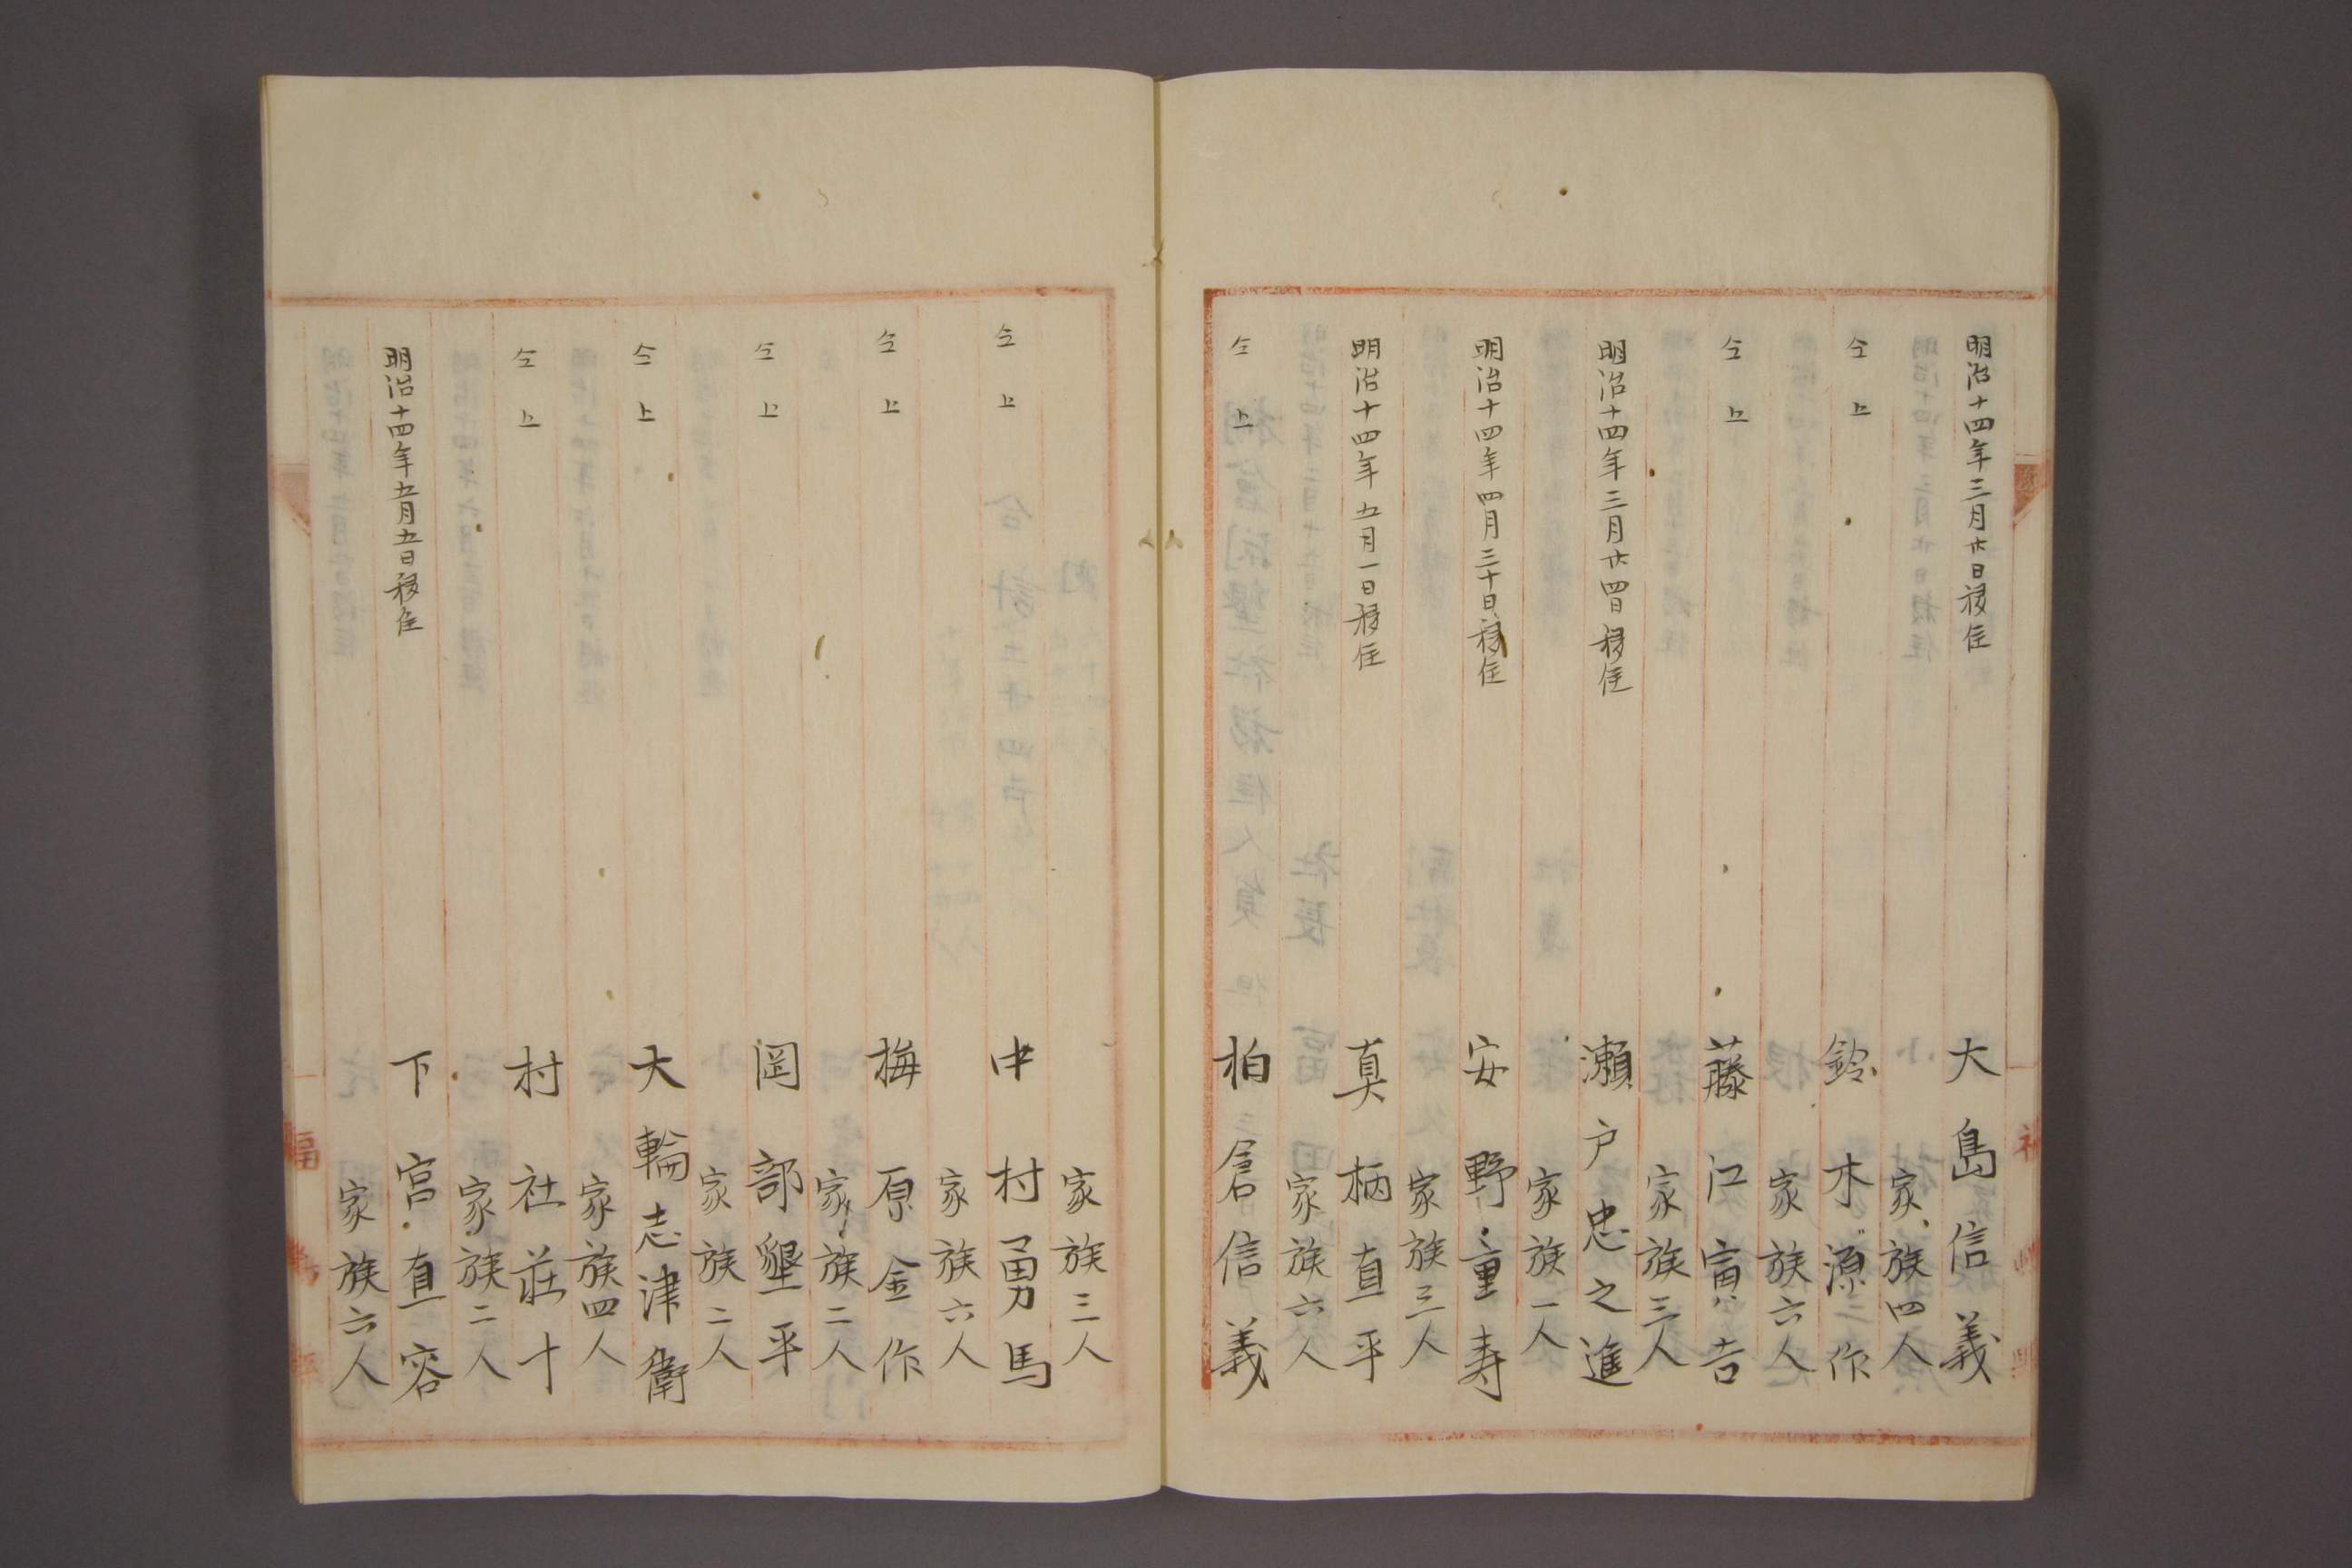 明治十四年三月廿日移住 大島信義
家族四人
仝上 鈴木源作
家族六人
仝上 藤江寅吉
家族三人
明治十四年三月廿四日移住 瀬戸忠之進
家族一人
明治十四年四月三十日移住 安野重寿
家族三人
明治十四年五月一日移住 真柄直平
家族六人
仝上 柏倉信義
家族三人
仝上 中村勇馬
家族六人
仝上 梅原金作
家族二人
仝上 岡部墾平
家族二人
仝上 大輪志津衛
家族四人
仝上 村社荘十
家族二人
明治十四年五月五日移住 下宮直容
家族六人